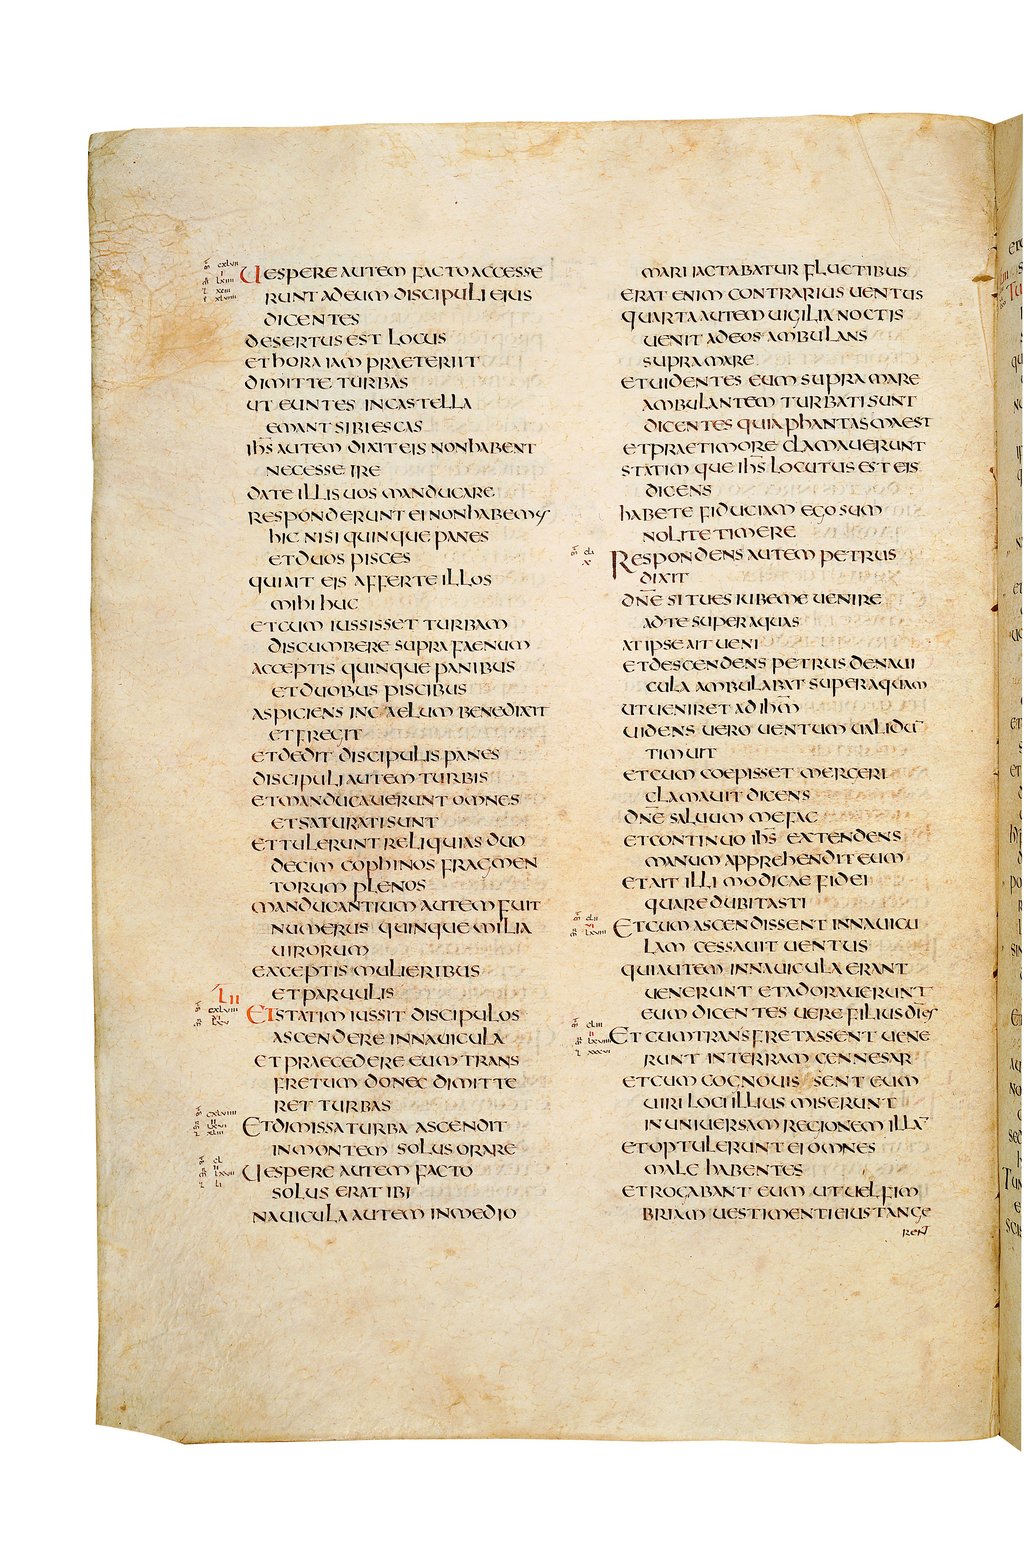 UESPERE AUTEM FACTO ACCESSE
RUNT AD EUM DISCIPULI EIUS
DICENTES
DESERTUS EST LOCUS
ET HORA IAM PRAETERIIT
DIMITTE TURBAS
UT EUNTES IN CASTELLA
EMANT SIBI ESCAS
IHS AUTEM DIXIT EIS NON HABENT
NECESSE IRE
DATE ILLIS UOS MANDUCARE
RESPONDERUNT EI NON HABEMUS
HIC NISI QUINQUE PANES
ET DUOS PISCES
QUI AIT EIS AFFERTE ILLOS
MIHI HUC
ET CUM IUSSISSET TURBAM
DISCUMBERE SUPRA FAENUM
ACCEPTIS QUINQUE PANIBUS
ET DUOBUS PISCIBUS
ASPICIENS IN CAELUM BENEDIXIT
ET FREGIT
ET DEDIT DISCIPULIS PANES
DISCIPULI AUTEM TURBIS
ET MANDUCAUERUNT OMNES
ET SATURATI SUNT
ET TULERUNT RELIQUIAS DUO
DECIM COPHINOS FRAGMEN
TORUM PLENOS
MANDUCANTIUM AUTEM FUIT
NUMERUS QUINQUE MILIA
UIRORUM
EXCEPTIS MULIERIBUS
ET PARUULIS
LII
CXLVIII
VI
LXV
ET STATIM IUSSIT DISCIPULOS
ASCENDERE IN NAUICULA
ET PRAECEDERE EUM TRANS
FRETUM DONEC DIMITTE
RET TURBAS
CXLVIIII
II
LXVI
ET DIMISSA TURBA ASCENDIT
IN MONTEM SOLUS ORARE
CL
LXVII
LI
UESPERE AUTEM FACTO
SOLUS ERAT IBI
NAUICULA AUTEM IN MEDIO
MARI IACTABATUR FLUCTIBUS
ERAT ENIM CONTRARIUS UENTUS
QUARTA AUTEM UIGILIA NOCTIS
UENIT AD EOS AMBULANS
SUPRA MARE
ET UIDENTES EUM SUPRA MARE
AMBULANTEM TURBATI SUNT
DICENTES QUIA PHANTASMA EST
ET PRAE TIMORE CLAMAUERUNT
STATIMQUE IHS LOCUTUS EST EIS
DICENS
HABETE FIDUCIAM EGO SUM
NOLITE TIMERE
CLI
X
RESPONDENS AUTEM PETRUS
DIXIT
DNE SI TU ES IUBE ME UENIRE
AD TE SUPER AQUAS
AT IPSE AIT UENI
ET DESCENDENS PETRUS DE NAUI
CULA AMBULABAT SUPER AQUAM
UT UENIRET AD IHM
UIDENS UERO UENTUM UALIDŪ
TIMUIT
ET CUM COEPISSET MERGERI
CLAMAUIT DICENS
DNE SALUUM ME FAC
ET CONTINUO IHS EXTENDENS
MANUM APPREHENDIT EUM
ET AIT ILLI MODICAE FIDEI
QUARE DUBITASTI
CLII
VI
LXVIII
ET CUM ASCENDISSENT IN NAUICU
LAM CESSAUIT UENTUS
QUI AUTEM IN NAUICULA ERANT
UENERUNT ET ADORAUERUNT
EUM DICENTES UERE FILIUS DI ES
CLIII
II
LXVIIII
XXXVI
ET CUM TRANSFRETASSENT UENE
RUNT IN TERRAM GENNESAR
ET CUM COGNOUISSENT EUM
UIRI LOCI ILLIUS MISERUNT
IN UNIUERSAM REGIONEM ILLĀ
ET OPTULERUNT EI OMNES
MALE HABENTES
ET ROGABANT EUM UT UEL FIM
BRIAM UESTIMENTI EIUS TANGE
RENT